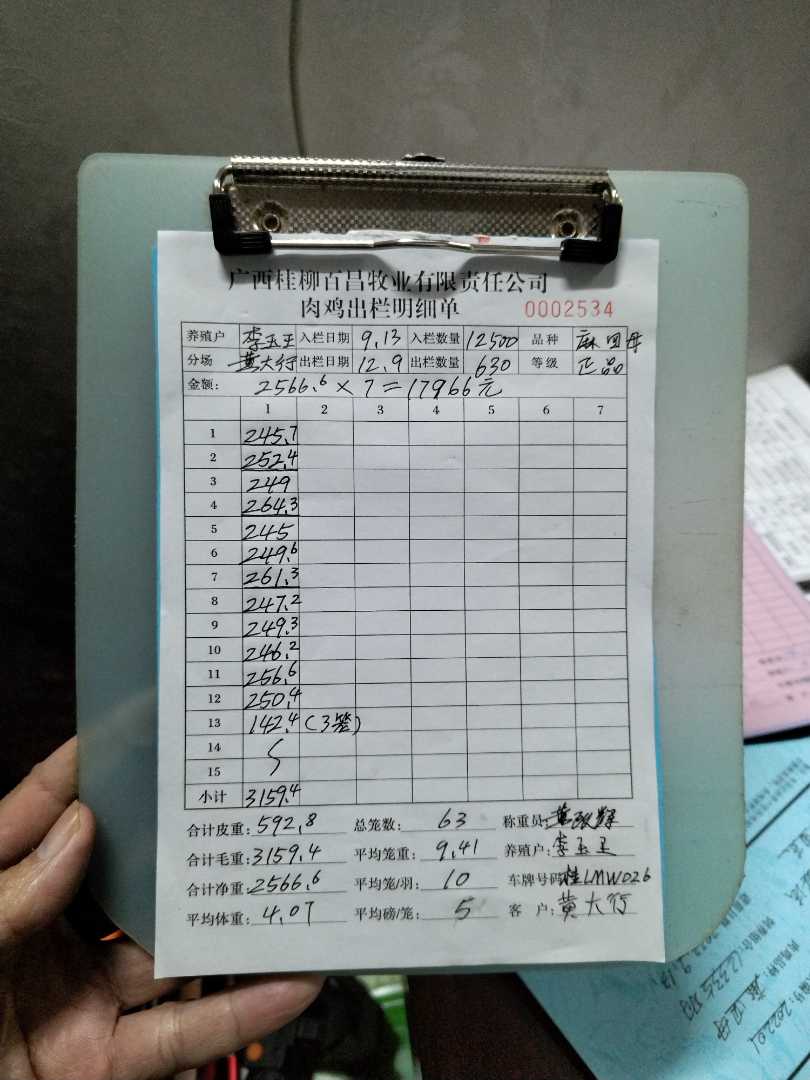 广西桂柳百昌牧业有限责任公司
肉鸡出栏明细单 0002534
养殖户 李玉王 入栏日期 9.13 入栏数量 12500 品种 麻园母
分场 黄大行 出栏日期 12.9 出栏数量 630 等级 正品
金额: 2566.6 × 7 = 17966元
1 2 3 4 5 6 7
1 245.7
2 252.4
3 249
4 264.3
5 245
6 249.6
7 261.3
8 247.2
9 249.3
10 246.2
11 256.6
12 250.4
13 142.4 (3笼)
14
15
小计 3159.4
合计皮重: 592.8 总笼数: 63 称重员:
合计毛重: 3159.4 平均笼重: 9.41 养殖户: 李玉王
合计净重: 2566.6 平均笼/羽: 10 车牌号码: 桂LMW026
平均体重: 4.07 平均磅/笼: 5 客户: 黄大行